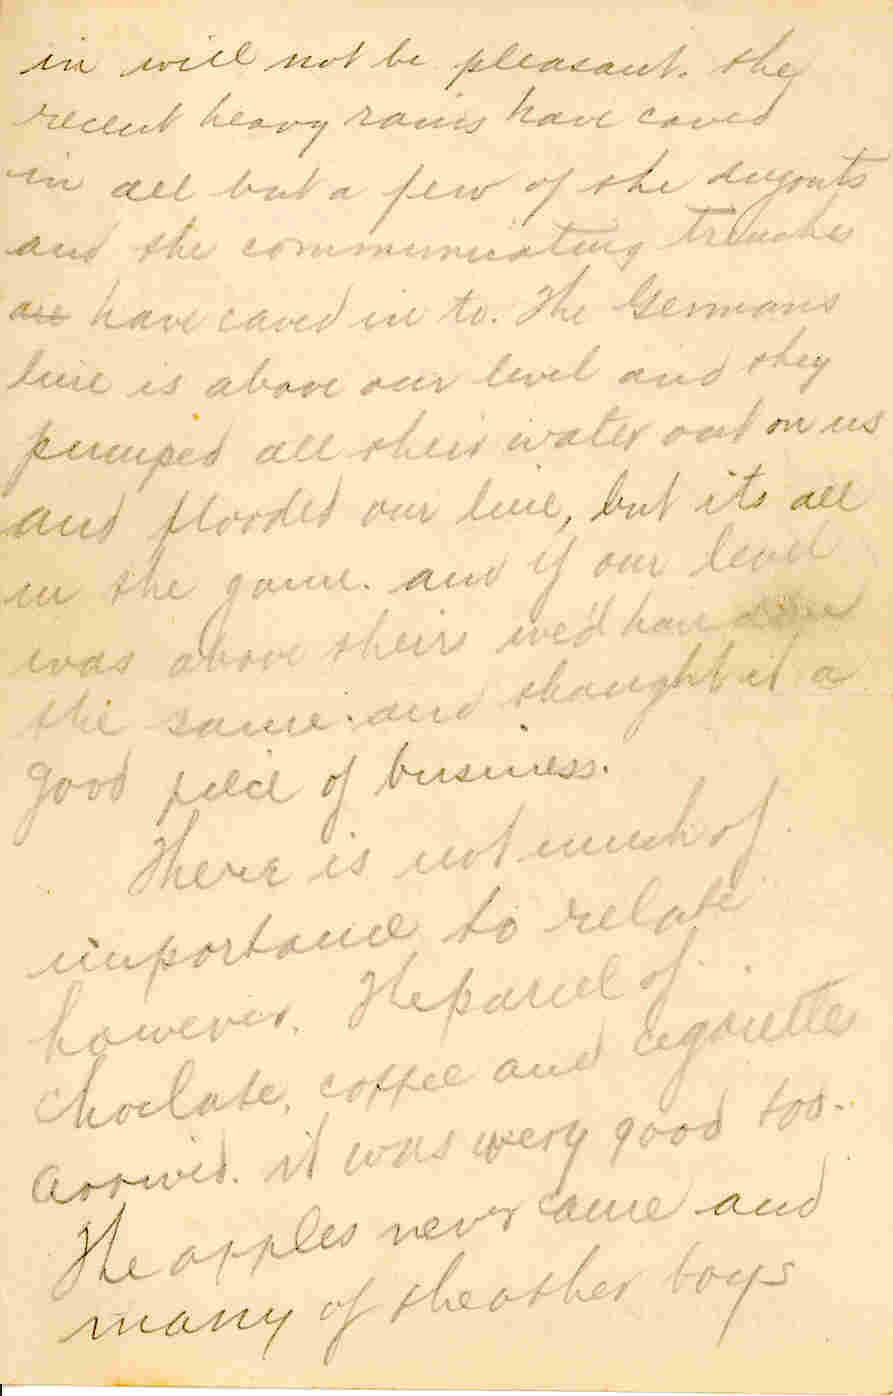 in will not be pleasant. the
recent heavy rains have caved
in all but a few of the dugouts
and the communicating trenches
are have caved in to. The Germans
line is above our level and they
pumped all their water out on us
and flooded our line, but its all
in the game. and if our level
was above theirs we'd have done
the same. and thought it a
good piece of business.
There is not much of
importance to relate
however. The parcel of
choclate, coffee and cigarettes
arrived. it was very good too.
The apples never came and
many of the other boys